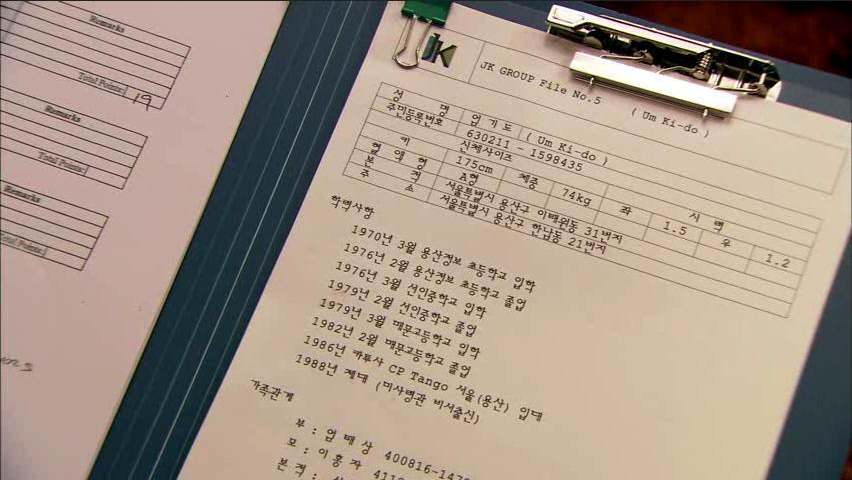 Remarks
Total Points:
19
Remarks
Total Points:
Remarks
Total Points:
JK
JK GROUP File No.5 ( Um Ki-do )
성 명 엄기도 ( Um Ki-do )
주민등록번호 630211 - 1598435
신체사이즈
키 175cm 체중 74kg 좌 시력 1.5 우 1.2
혈액형 A형
본 적 서울특별시 용산구 이태원동 31번지
주 소 서울특별시 용산구 한남동 21번지
학력사항
1970년 3월 용산정보 초등학교 입학
1976년 2월 용산정보 초등학교 졸업
1976년 3월 선인중학교 입학
1979년 2월 선인중학교 졸업
1979년 3월 매문고등학교 입학
1982년 2월 매문고등학교 졸업
1986년 카투사 CP Tango 서울(용산) 입대
1988년 제대 (미사령관 비서출신)
가족관계
부 : 엄태상 400816-147
모 : 이홍자
본 적 :